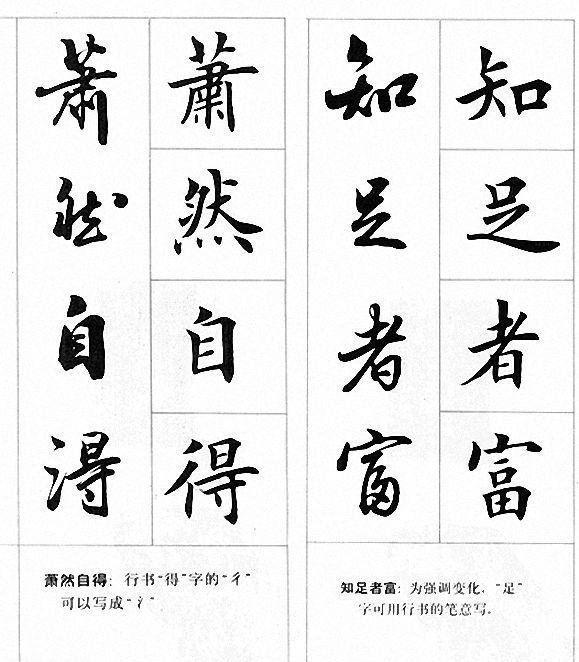 知足者富
知足者富
知足者富：为强调变化，“足”
字可用行书的笔意写。
蕭然自得
蕭然自得
萧然自得：行书“得”字的“彳”
可以写成“氵”